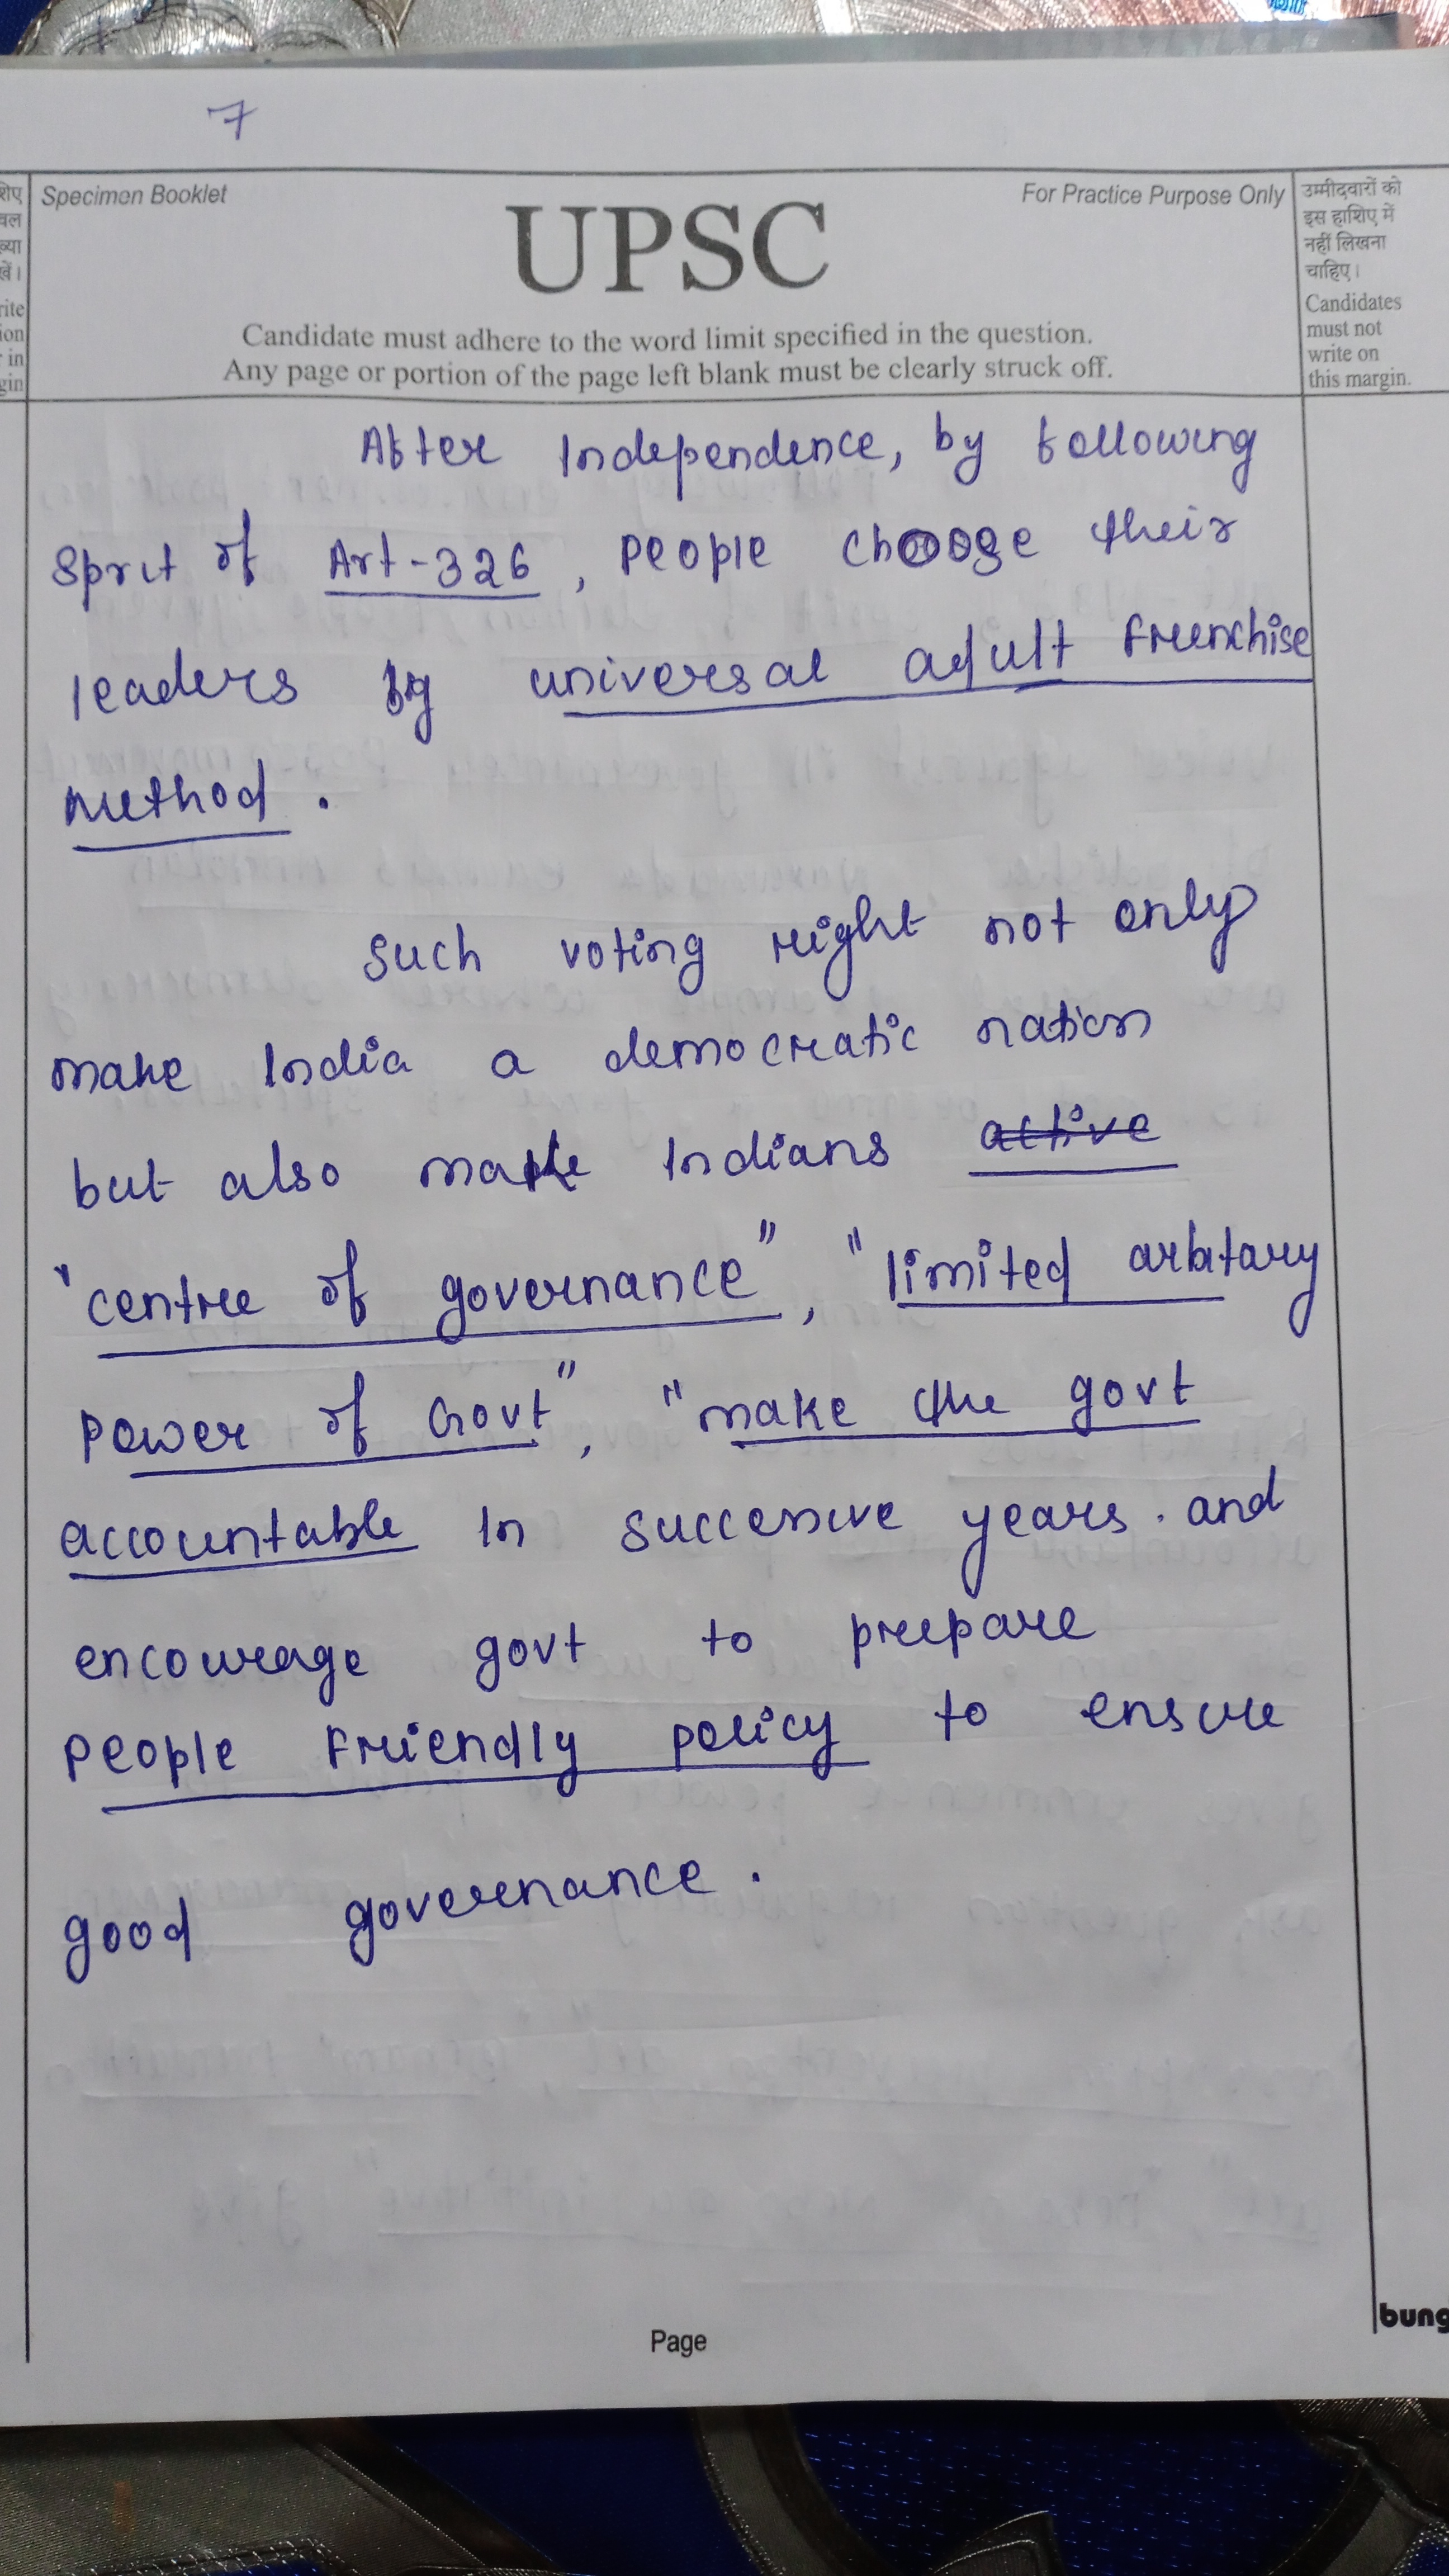 7
शिए
वल
ख्या
खें।
rite
ion
in
gin
Specimen Booklet
For Practice Purpose Only
UPSC
Candidate must adhere to the word limit specified in the question.
Any page or portion of the page left blank must be clearly struck off.
उम्मीदवारों को
इस हाशिए में
नहीं लिखना
चाहिए।
Candidates
must not
write on
this margin.
After Independence, by following
Sprit of Art-326, people choose their
leaders by universal adult Frenchise
method.
Such voting right not only
make India a democratic nation
but also make Indians active
"centre of governance", "limited arbitary
power of Govt", "make the govt
accountable In successive years. and
encourage govt to prepare
people Friendly policy to ensure
good governance.
Page
bung